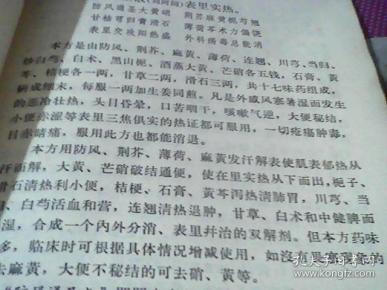 表里实热。
防风通圣大黄硝 荆芥麻黄栀芍翘
甘桔芎归膏滑石 薄荷芩术力偏饶
表里交攻阳热盛 外科疡毒总能消
本方是由防风、荆芥、麻黄、薄荷、连翘、川芎、当归、
炒白芍、白术、黑山栀、酒蒸大黄、芒硝各五钱，石膏、黄
芩、桔梗各一两，甘草二两，滑石三两，共十七味药组成，
研成细末，每服一两加生姜同煎。凡是外感风寒暑湿而发生
的恶冷壮热，头目昏晕，口苦咽干，咳嗽气逆，大便秘结，
小便赤涩等表里三焦俱实的热证都可服用，一切疮疡肿毒，
目赤睛痛，服用此方也都能消退。
本方用防风、荆芥、薄荷、麻黄发汗解表使肌表郁热从
汗而解，大黄、芒硝破结通便，使在里实热从下而出，栀子、
滑石清热利小便，桔梗、石膏、黄芩泻热清肺胃，川芎、当
白芍活血和营，连翘清热退肿，甘草、白术和中健脾而
湿，合成一个内外分消、表里幷治的双解剂。但本方药味
多，临床时可根据具体情况增减使用，如没有
去麻黄，大便不秘结的可去硝、黄等。